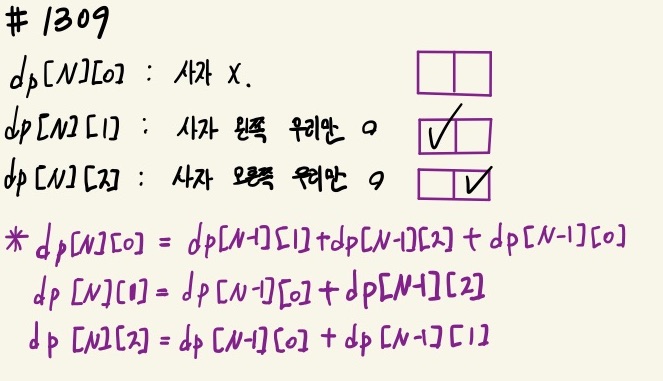 # 1309
dp[N][0] : 사자 X.
dp[N][1] : 사자 왼쪽 우리만 O
dp[N][2] : 사자 오른쪽 우리만 O
* dp[N][0] = dp[N-1][1]+dp[N-1][2] + dp[N-1][0]
dp[N][1] = dp[N-1][0] + dp[N-1][2]
dp[N][2] = dp[N-1][0] + dp[N-1][1]